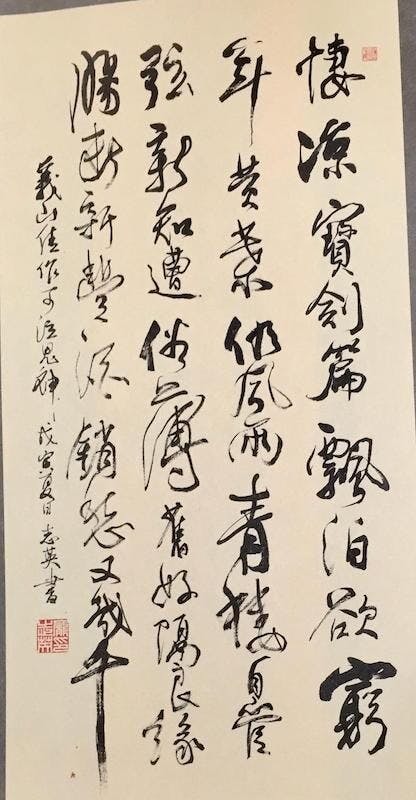 悽涼寶劍篇飄泊欲窮
年黃葉仍風雨青樓自管
弦新知遭俗薄舊好隔良緣
腸斷新豐酒銷愁又幾千
義山佳作可泣鬼神戊寅夏日志英書